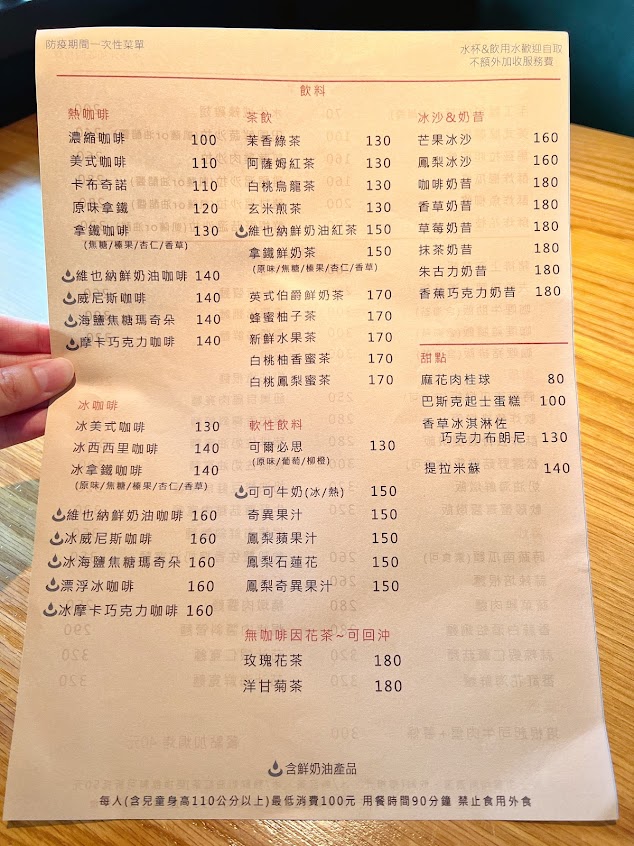 防疫期間一次性菜單
水杯&飲用水歡迎自取
不額外加收服務費
飲料
熱咖啡
濃縮咖啡 100
美式咖啡 110
卡布奇諾 110
原味拿鐵 120
拿鐵咖啡 130
(焦糖/榛果/杏仁/香草)
維也納鮮奶油咖啡 140
威尼斯咖啡 140
海鹽焦糖瑪奇朵 140
摩卡巧克力咖啡 140
冰咖啡
冰美式咖啡 130
冰西西里咖啡 140
冰拿鐵咖啡 140
(原味/焦糖/榛果/杏仁/香草)
維也納鮮奶油咖啡 160
冰威尼斯咖啡 160
冰海鹽焦糖瑪奇朵 160
漂浮冰咖啡 160
冰摩卡巧克力咖啡 160
茶飲
茉香綠茶 130
阿薩姆紅茶 130
白桃烏龍茶 130
玄米煎茶 130
維也納鮮奶油紅茶 150
拿鐵鮮奶茶 150
(原味/焦糖/榛果/杏仁/香草)
英式伯爵鮮奶茶 170
蜂蜜柚子茶 170
新鮮水果茶 170
白桃柚香蜜茶 170
白桃鳳梨蜜茶 170
軟性飲料
可爾必思 130
(原味/葡萄/柳橙)
可可牛奶(冰/熱) 150
奇異果汁 150
鳳梨蘋果汁 150
鳳梨石蓮花 150
鳳梨奇異果汁 150
無咖啡因花茶~可回沖
玫瑰花茶 180
洋甘菊茶 180
冰沙&奶昔
芒果冰沙 160
鳳梨冰沙 160
咖啡奶昔 180
香草奶昔 180
草莓奶昔 180
抹茶奶昔 180
朱古力奶昔 180
香蕉巧克力奶昔 180
甜點
麻花肉桂球 80
巴斯克起士蛋糕 100
香草冰淇淋佐
巧克力布朗尼 130
提拉米蘇 140
含鮮奶油產品
每人(含兒童身高110公分以上)最低消費100元 用餐時間90分鐘 禁止食用外食